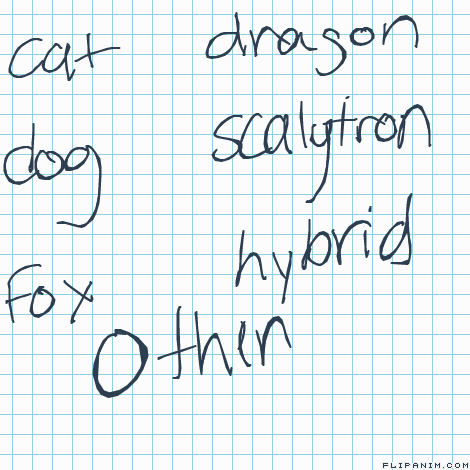 cat
dragon
dog
scalytron
hybrid
Fox
Othin
FLIPANIM.COM